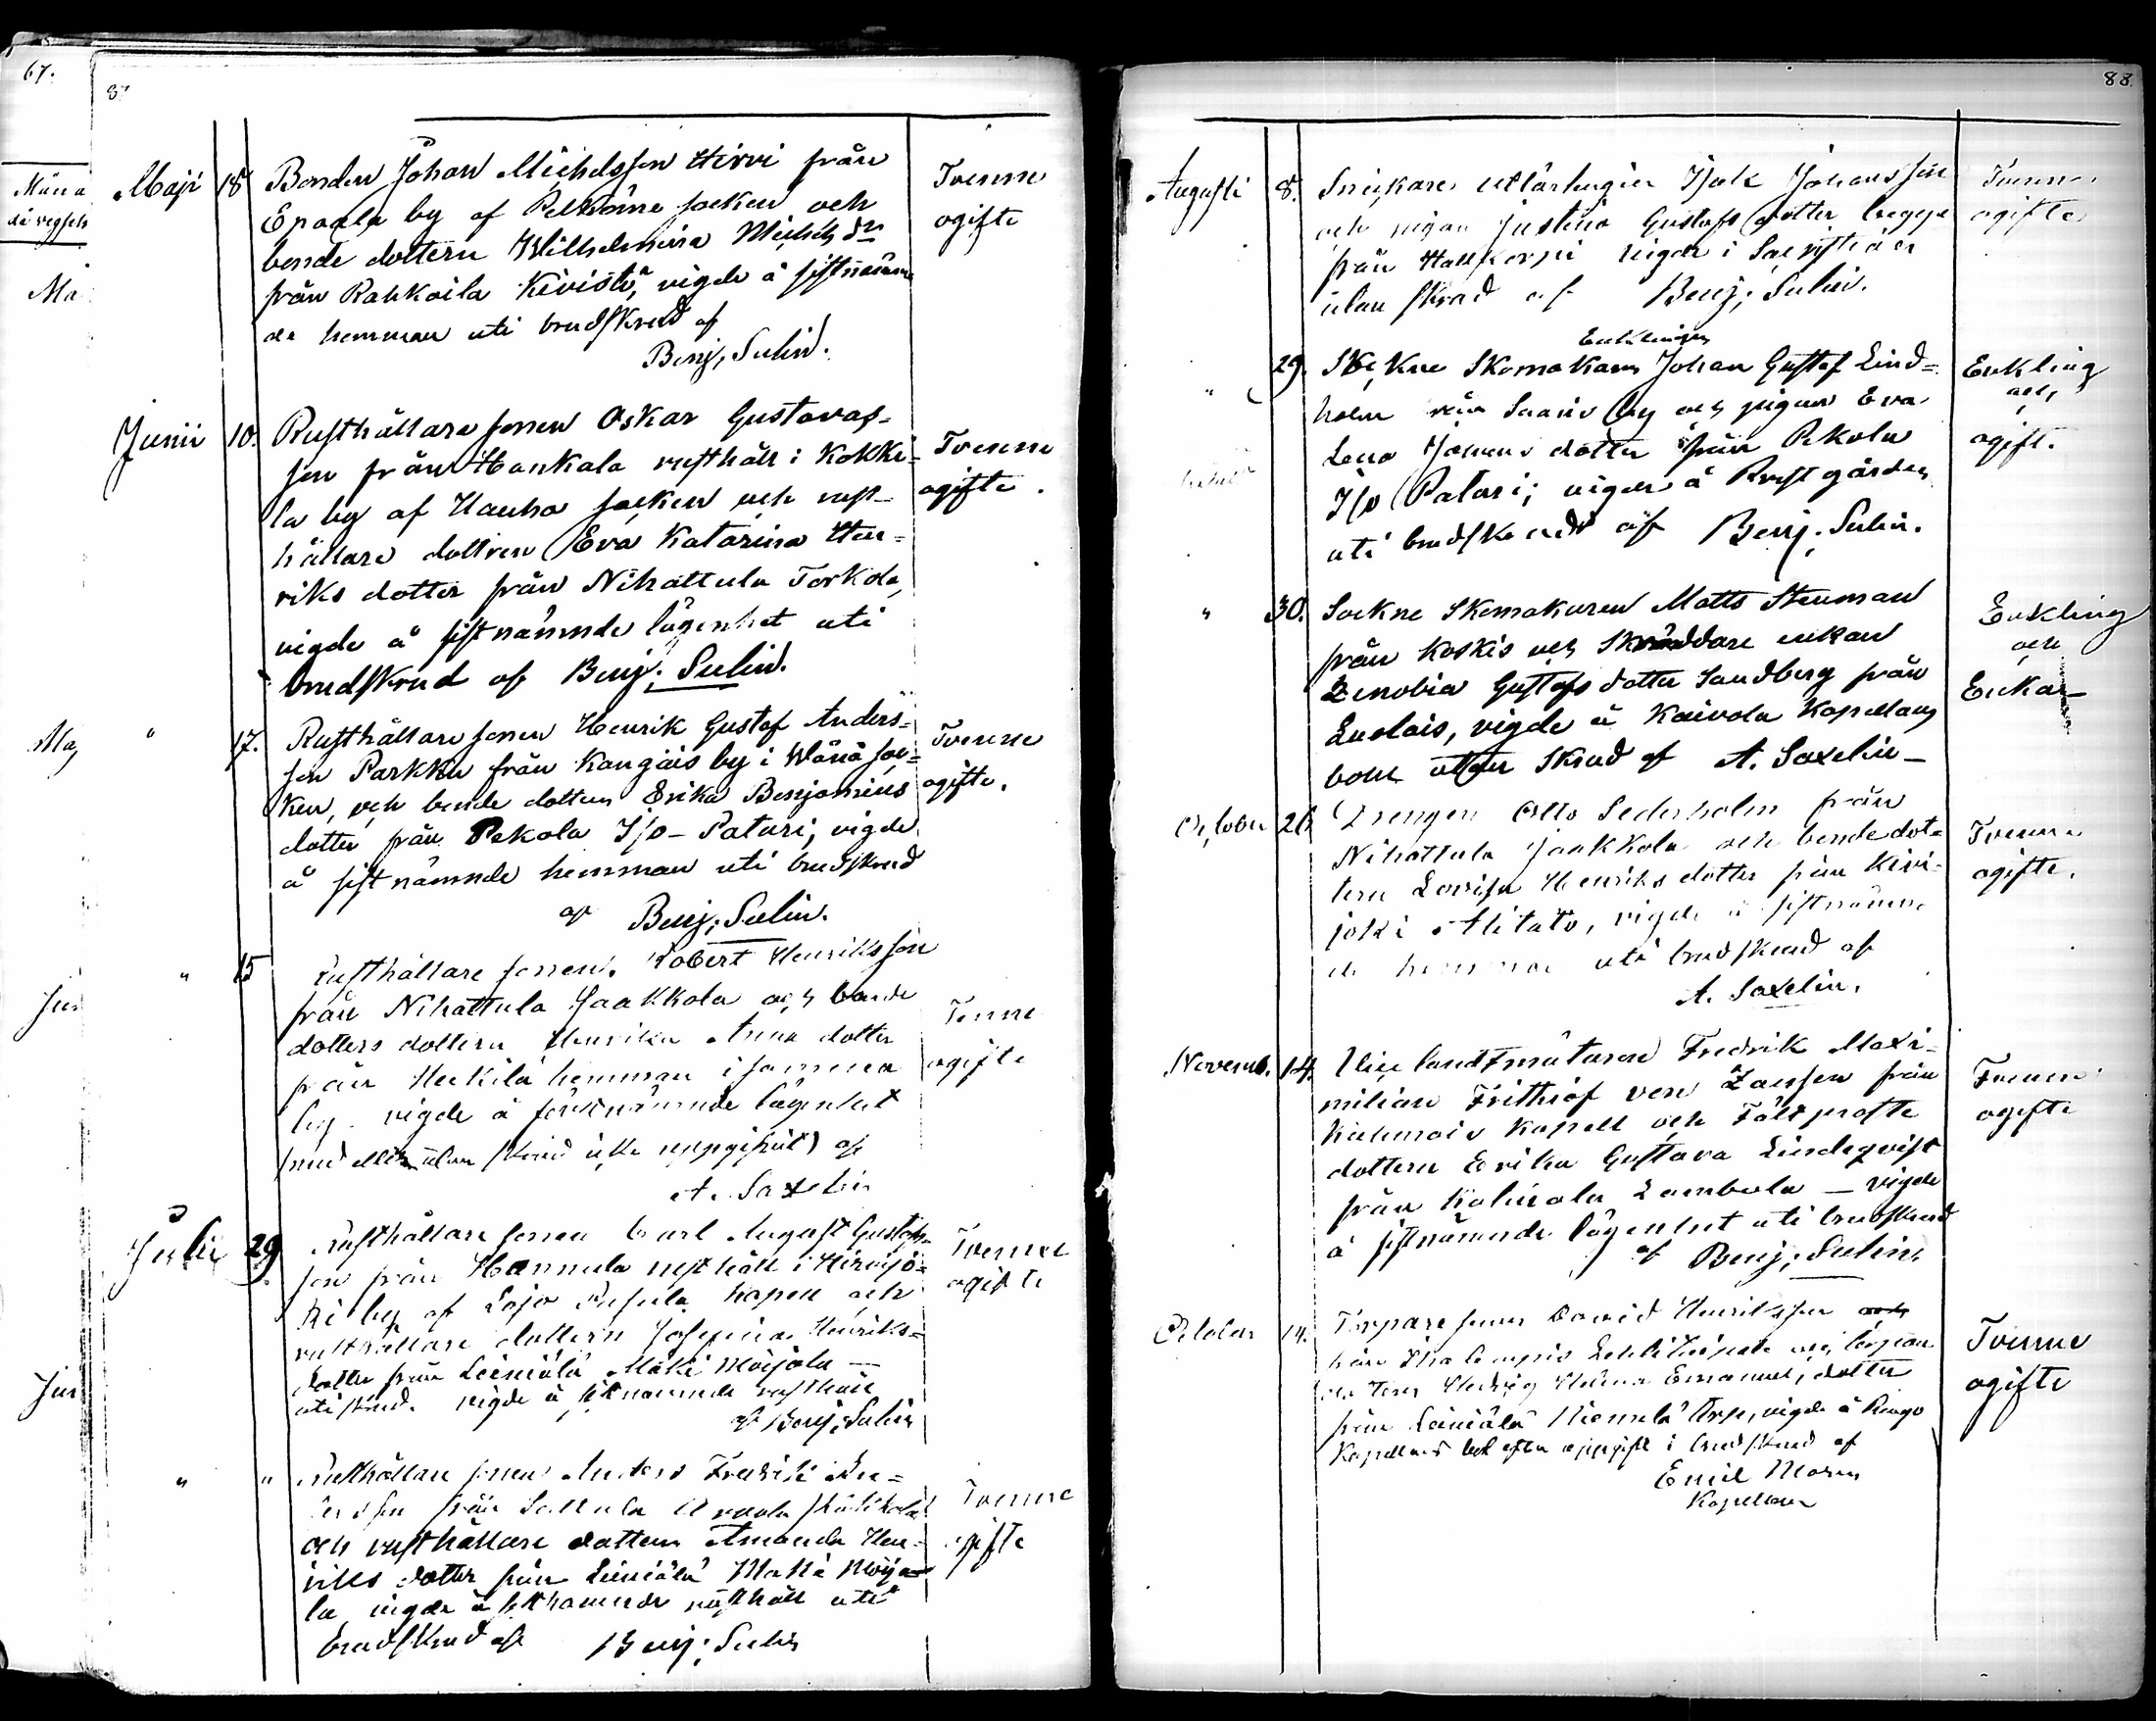 67.
Måna
Ma
Maj
Jun
Jun
87
Maji 18 Bonden Johan Michelsson Hirvi från
Epaala by af Pelkäne socken och
bonde dottern Wilhelmina Michels dr
från Rahkoila Kivistö, vigde å sistnämn
de hemman uti brudskrud af
Benj. Sulin.
Tvenne
ogifte
Junii 10. Rusthållare sonen Oskar Gustavas-
son från Hankala rusthåll i Kokki-
la by af Hauho socken och rust-
hållare dottren Eva Katarina Hen-
riks dotter från Nihattula Torkola,
vigde å sistnämnde lägenhet uti
brudskrud af Benj. Sulin.
Tvenne
ogifte.
" 17. Rusthållare sonen Henrik Gustaf Anders-
son Parkku från Kangais by i Wånå soc-
ken, och bonde dottern Erika Benjamins
dotter från Pekola I/o - Paturi, vigde
å sistnämnde hemman uti brudskrud
af Benj. Sulin.
Tvenne
ogifte.
" 15 Rusthållare sonen Robert Henriksson
från Nihattula Jaakkola och bonde
dotters dottern Henrika Anna dotter
från Heikilä hemman i
by vigde å förstnämnde lägenhet
(med eller utan skrud icke uppgifvit) af
A. Saxelin
Tvenne
ogifte
Julii 29 Rusthållare sonen Carl August Gustafs-
son från Hannula rusthåll i Hirvijo-
ki by af Lojo Pusula kapell och
rusthållare dottern Josefina Henriks-
dotter från Leiniälä Mäki Moijola —
uti skrud. vigde å sistnämnde rusthåll
af Benj. Sulin
Tvenne
ogifte
" " Rusthållare sonen Anders Fredrik An-
dersson från Sattula
och rusthållare dottern Amanda Hen-
riks dotter från Leiniälä Mäki Moijo-
la, vigde å sistnämnde rusthåll uti
brudskrud af Benj. Sulin
Tvenne
ogifte
88.
Augusti 8. Snickare Isak Johansson
och pigan Justina Gustafs dotter begge
från vigde i Sacristian
utan skrud af Benj. Sulin.
Tvenne
ogifte
Enklingen
" 29. Sockne Skomakaren Johan Gustaf Lind-
holm från Saaris by och pigan Eva
Lena Johans dotter från Pekola
I/o Paturi; vigde å Prestgården
uti brudskrud af Benj. Sulin.
Enkling
och
ogift.
" 30. Sockne Skomakaren Matts Stenman
från Koskis och Skräddare enkan
Zenobia Gustafs dotter Sandberg från
Leiniälä, vigde å Kaivola Kapellans
bohl utan skrud af A. Saxelin —
Enkling
och
Enka —
October 26 Drengen Otto Sederholm från
Nihattula Jaakkola och bonde dot-
tern Lovisa Henriks dotter från Kivi-
joki Alitalo, vigde å sistnämn
de hemman uti brudskrud af
A. Saxelin.
Tvenne
ogifte.
Novemb. 14. Vice landtmätaren Fredrik Maxi-
milian Frithiof von Zansen från
Kalvola kapell och Fältprosts
dottern Erika Gustava Lindeqvist
från Lambola — vigde
å sistnämnde lägenhet uti brudskrud
af Benj. Sulin,
Tvenne
ogifte
October 14. Torpare sonen David Henriksson
från och torpare
dottern Hedvig Helena Emanuels dotter
från Leiniälä Torp, vigde å Rengo
Kapellans bol efter uppgift i brudskrud af
Emil Moren
Kapellan
Tvenne
ogifte